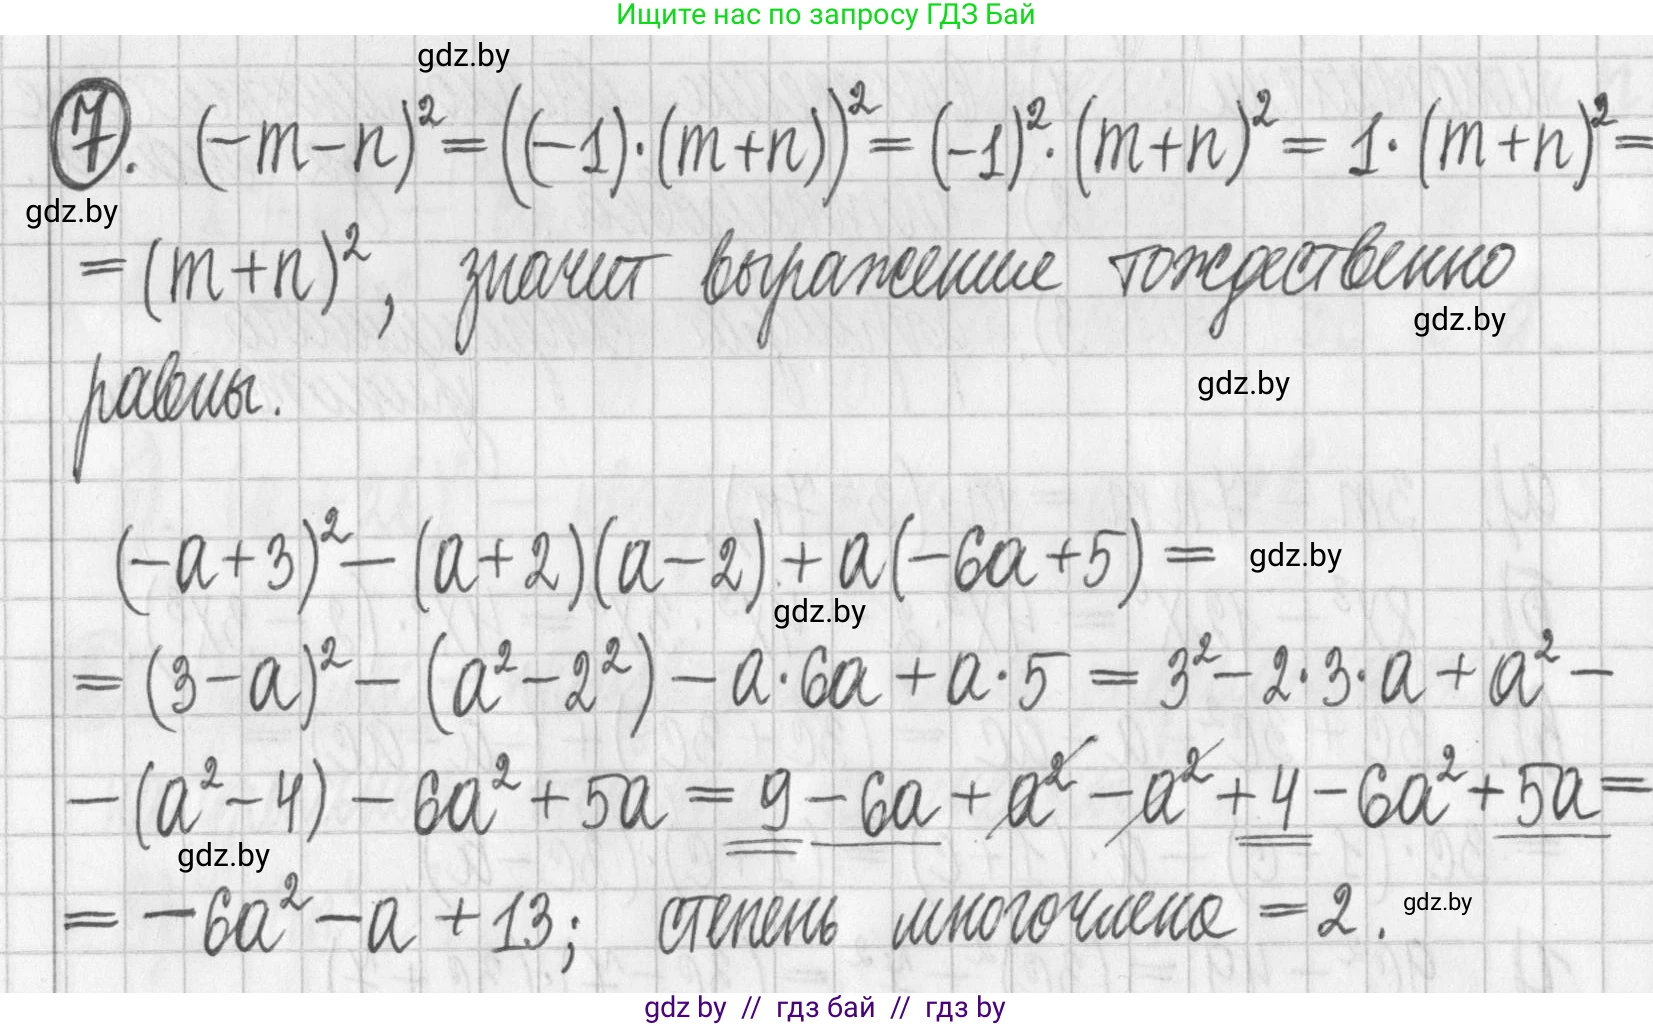 Ищите нас по запросу ГДЗ Бай
gdz.by
7. (-m-n)² = ((-1)·(m+n))² = (-1)²·(m+n)² = 1·(m+n)² =
gdz.by
= (m+n)², значит выражение тождественно
gdz.by
равны.
gdz.by
(-a+3)² - (a+2)(a-2) + a(-6a+5) =
gdz.by
gdz.by
= (3-a)² - (a²-2²) - a·6a + a·5 = 3² - 2·3·a + a² -
- (a²-4) - 6a² + 5a = 9 - 6a + a² - a² + 4 - 6a² + 5a =
gdz.by
= -6a² - a + 13; степень многочлена = 2.
gdz.by
gdz by // гдз бай // гдз by